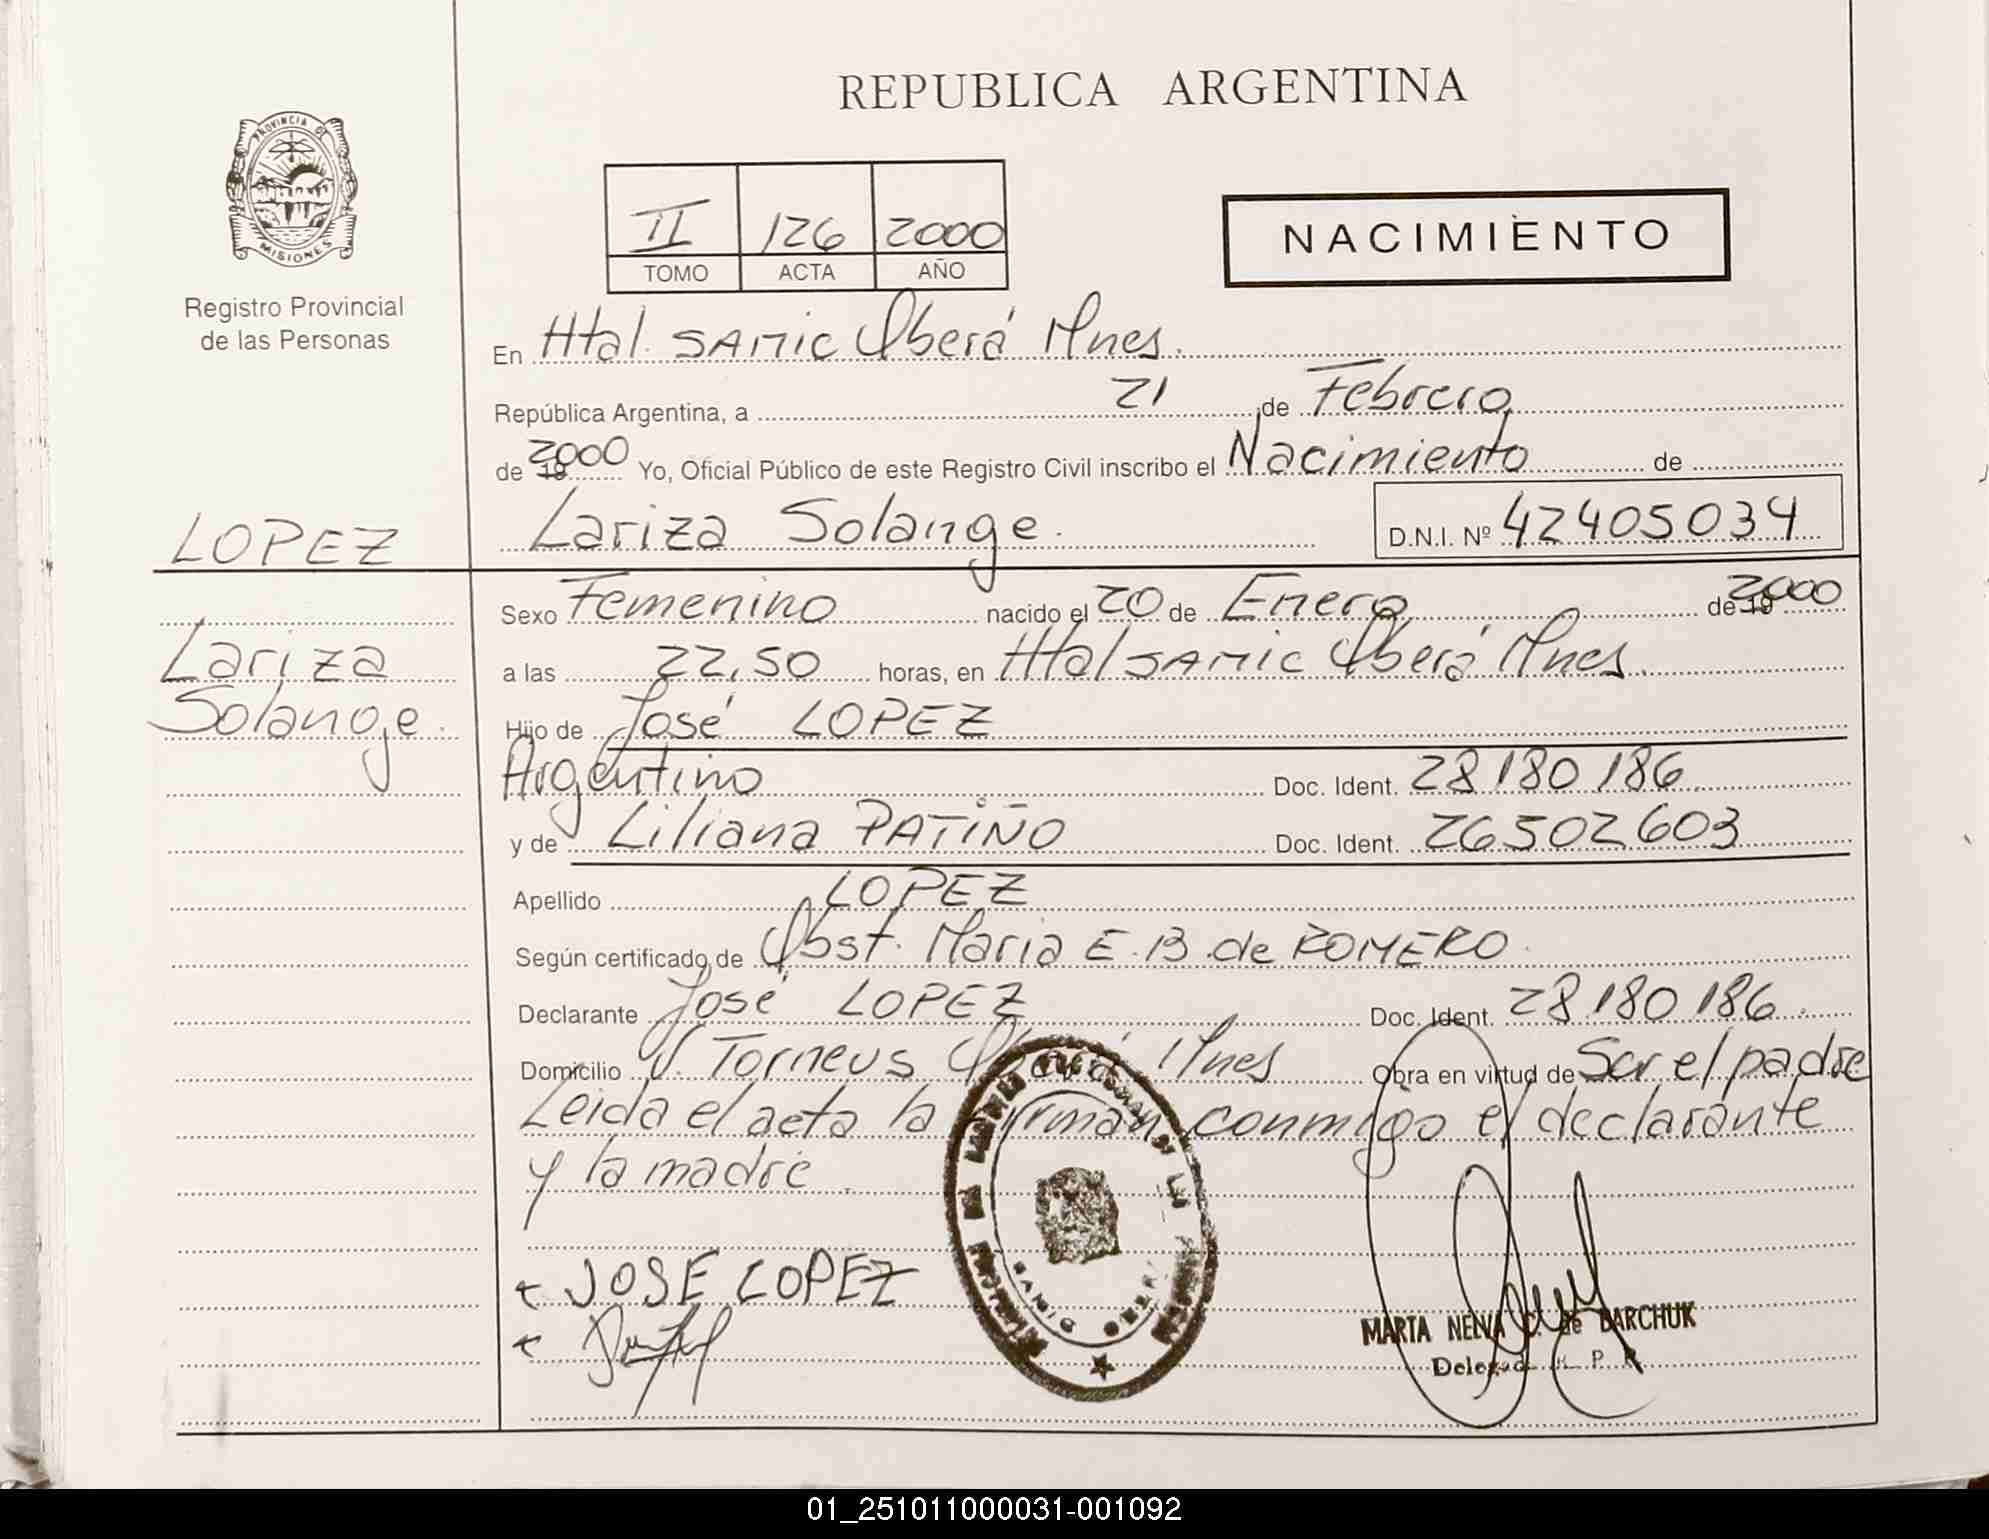 REPUBLICA ARGENTINA
PROVINCIA DE
MISIONES
Registro Provincial
de las Personas
II 126 2000
TOMO ACTA AÑO
NACIMIENTO
En Htal. SAMIC Oberá Mnes.
República Argentina, a 21 de Febrero
de 19 2000 Yo, Oficial Público de este Registro Civil inscribo el Nacimiento de
Lariza Solange. D.N.I. Nº 42405034
LOPEZ
Lariza
Solange.
Sexo Femenino nacido el 20 de Enero de 19 2000
a las 22,50 horas, en Htal SAMIC Oberá Mnes.
Hijo de José LOPEZ
Argentino Doc. Ident. 28180186
y de Liliana PATIÑO Doc. Ident. 26502603
Apellido LOPEZ
Según certificado de Obst. Maria E. B de ROMERO.
Declarante José LOPEZ Doc. Ident. 28180186.
Domicilio V. Torneus Oberá Mnes Obra en virtud de Ser el padre
Leida el acta la firman conmigo el declarante
y la madre
JOSE LOPEZ
MARTA NELVA C. de BARCHUK
Delegada R P
01_251011000031-001092